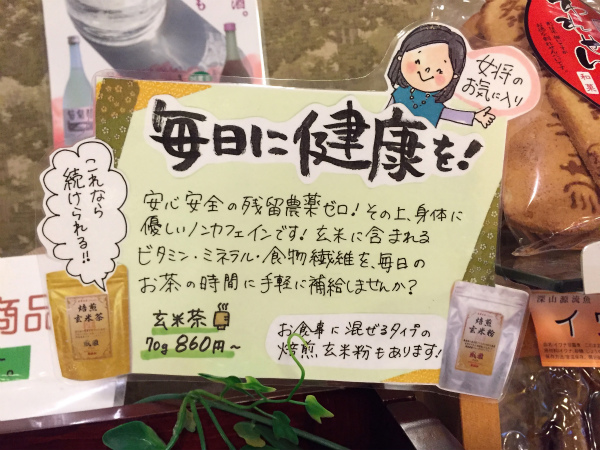 酒。
も
女将の
お気に入り
毎日に健康を!
これなら
続けられる!!
安心安全の残留農薬ゼロ!その上、身体に
優しいノンカフェインです!玄米に含まれる
ビタミン・ミネラル・食物繊維を、毎日の
お茶の時間に手軽に補給しませんか?
玄米茶
70g 860円〜
お食事に混ぜるタイプの
焙煎玄米粉もあります!
焙煎
玄米茶
焙煎
玄米粉
商品
す。
和菓
深山源流魚
イワ